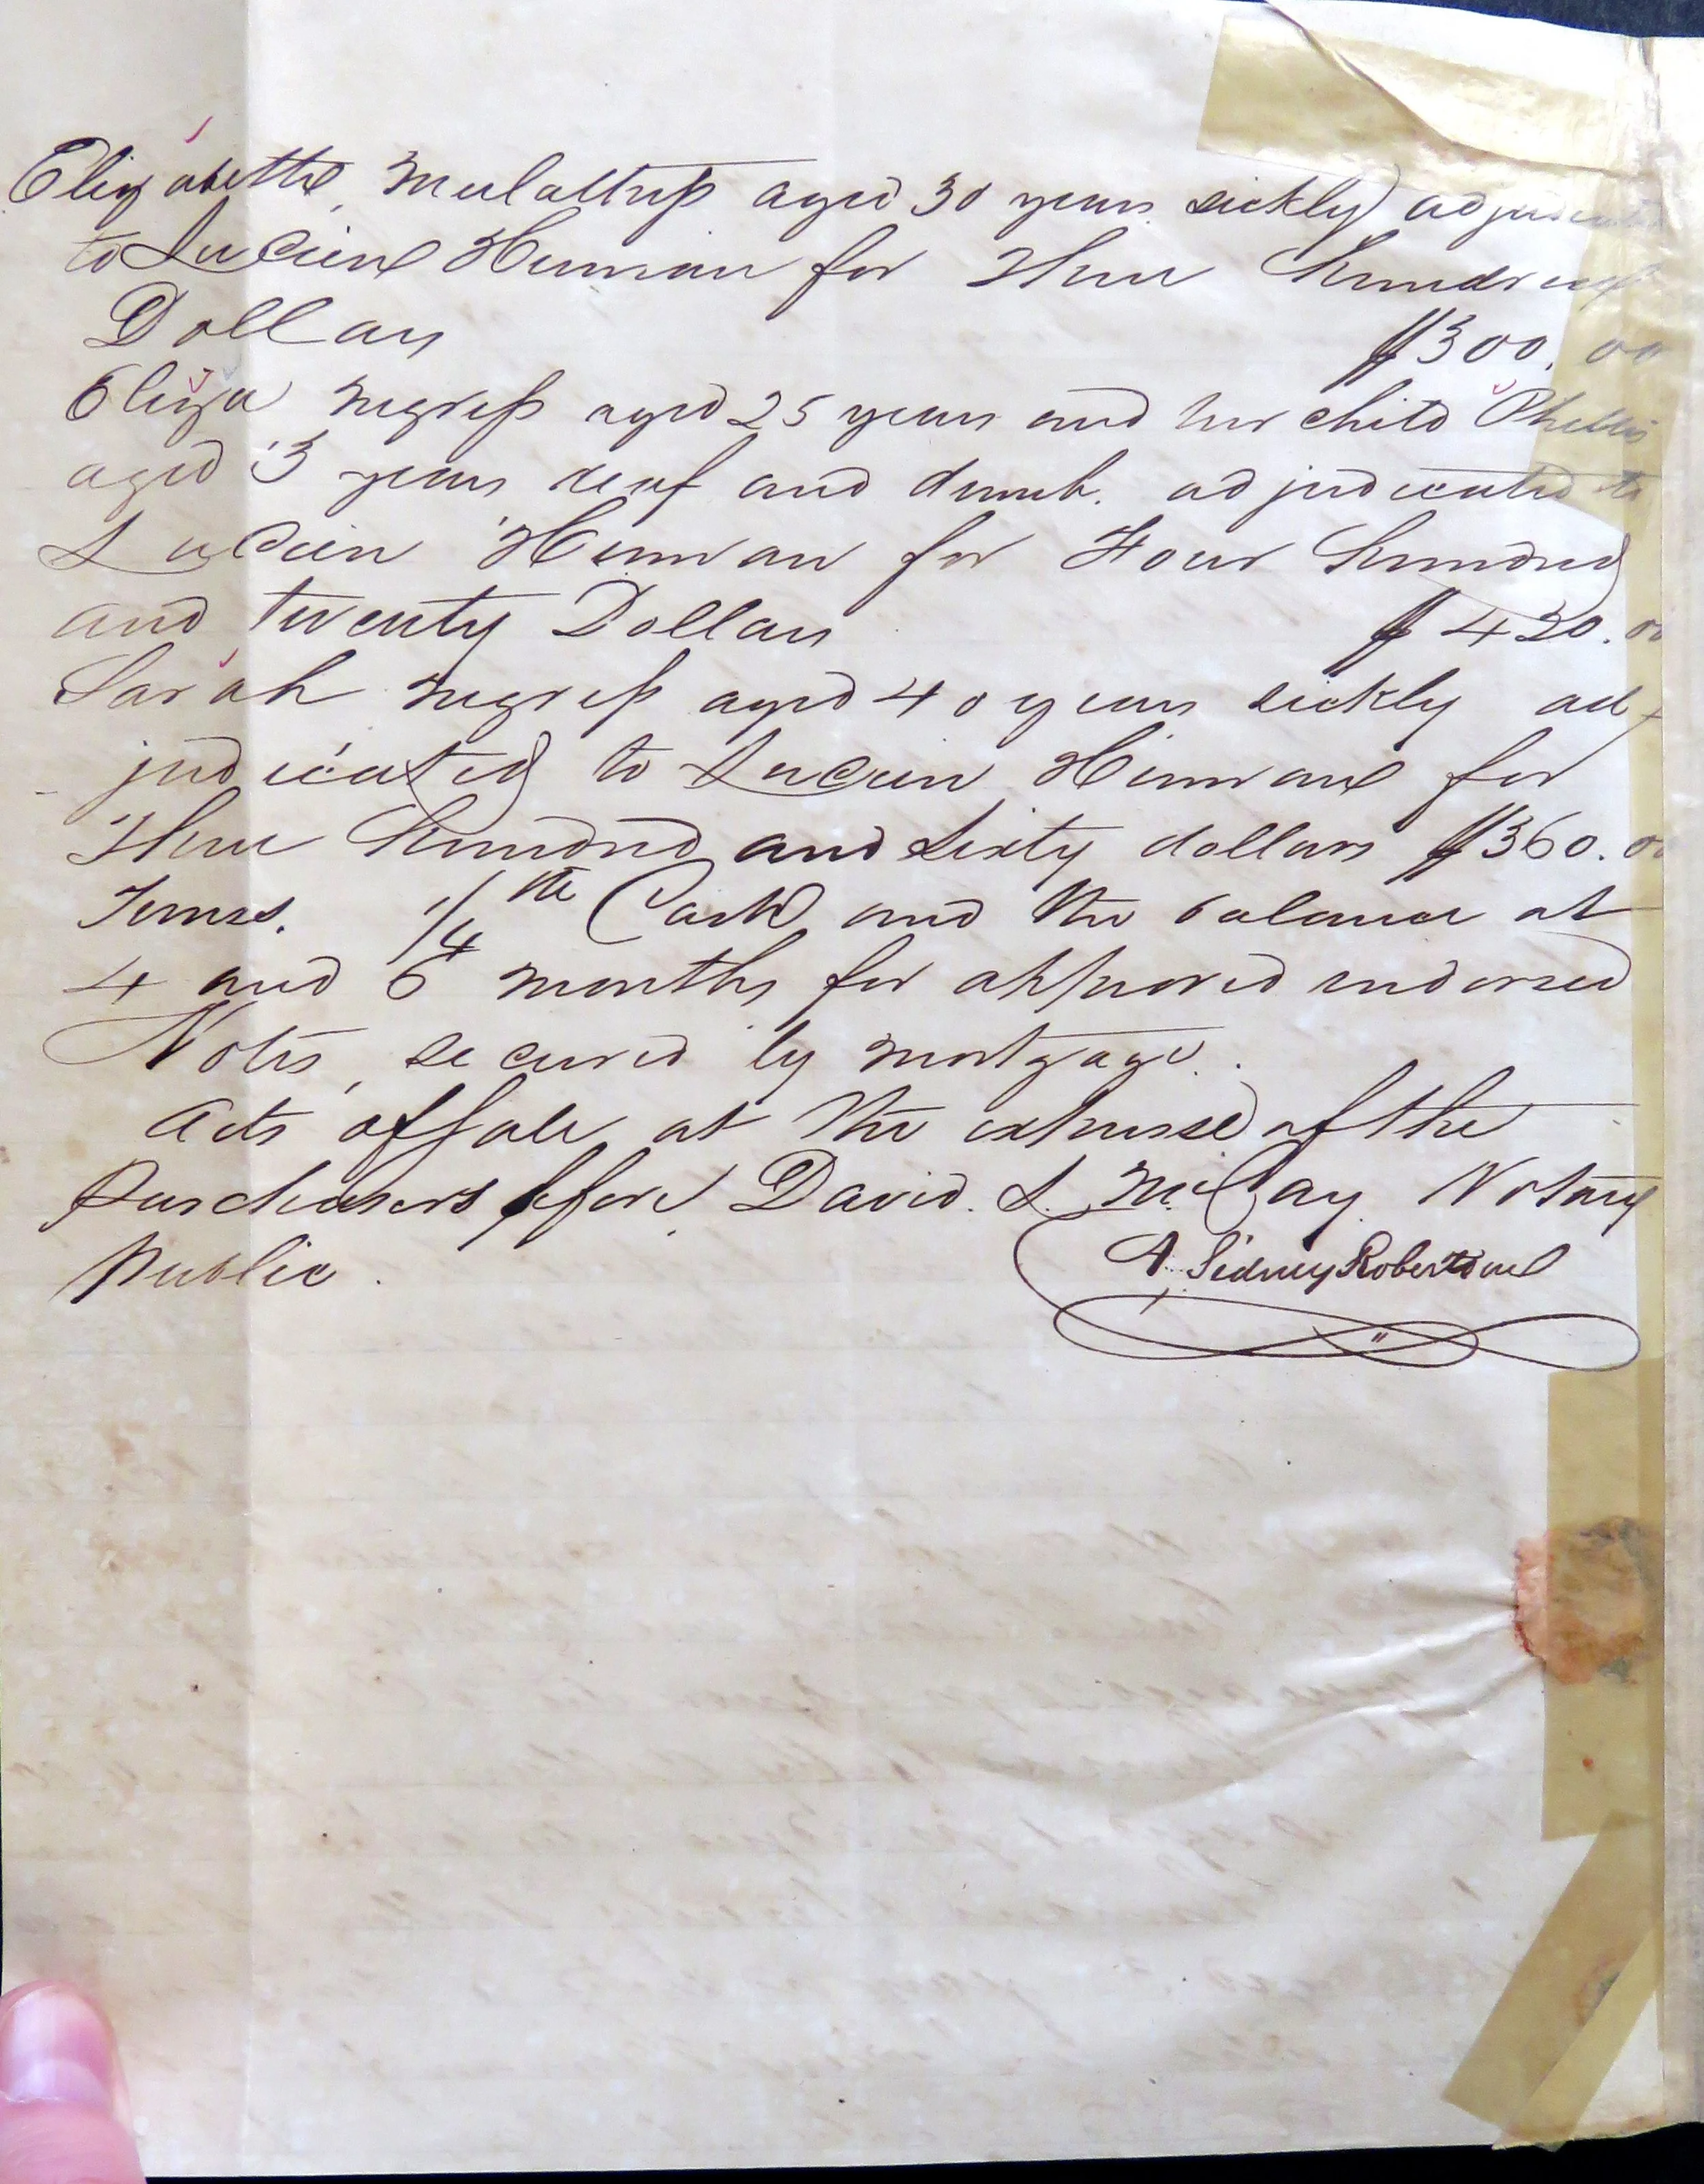 Elizabeth, Mulattress aged 30 years sickly adjudicated
to Lucien Herman for Three hundred
Dollars $300.00
Eliza negress aged 25 years and her child Phillis
aged 3 years deaf and dumb. adjudicated to
Lucien Herman for Four hundred
and twenty Dollars $420.00
Sarah negress aged 40 years sickly ad
judicated to Lucien Herman for
Three hundred and sixty dollars $360.00
Terms. 1/4th Cash and the balance at
4 and 6 months for approved endorsed
Notes, secured by mortgage.
Acts of sale at the expense of the
Purchasers before David L. McCay Notary
Public.
A. Sidney Robertson